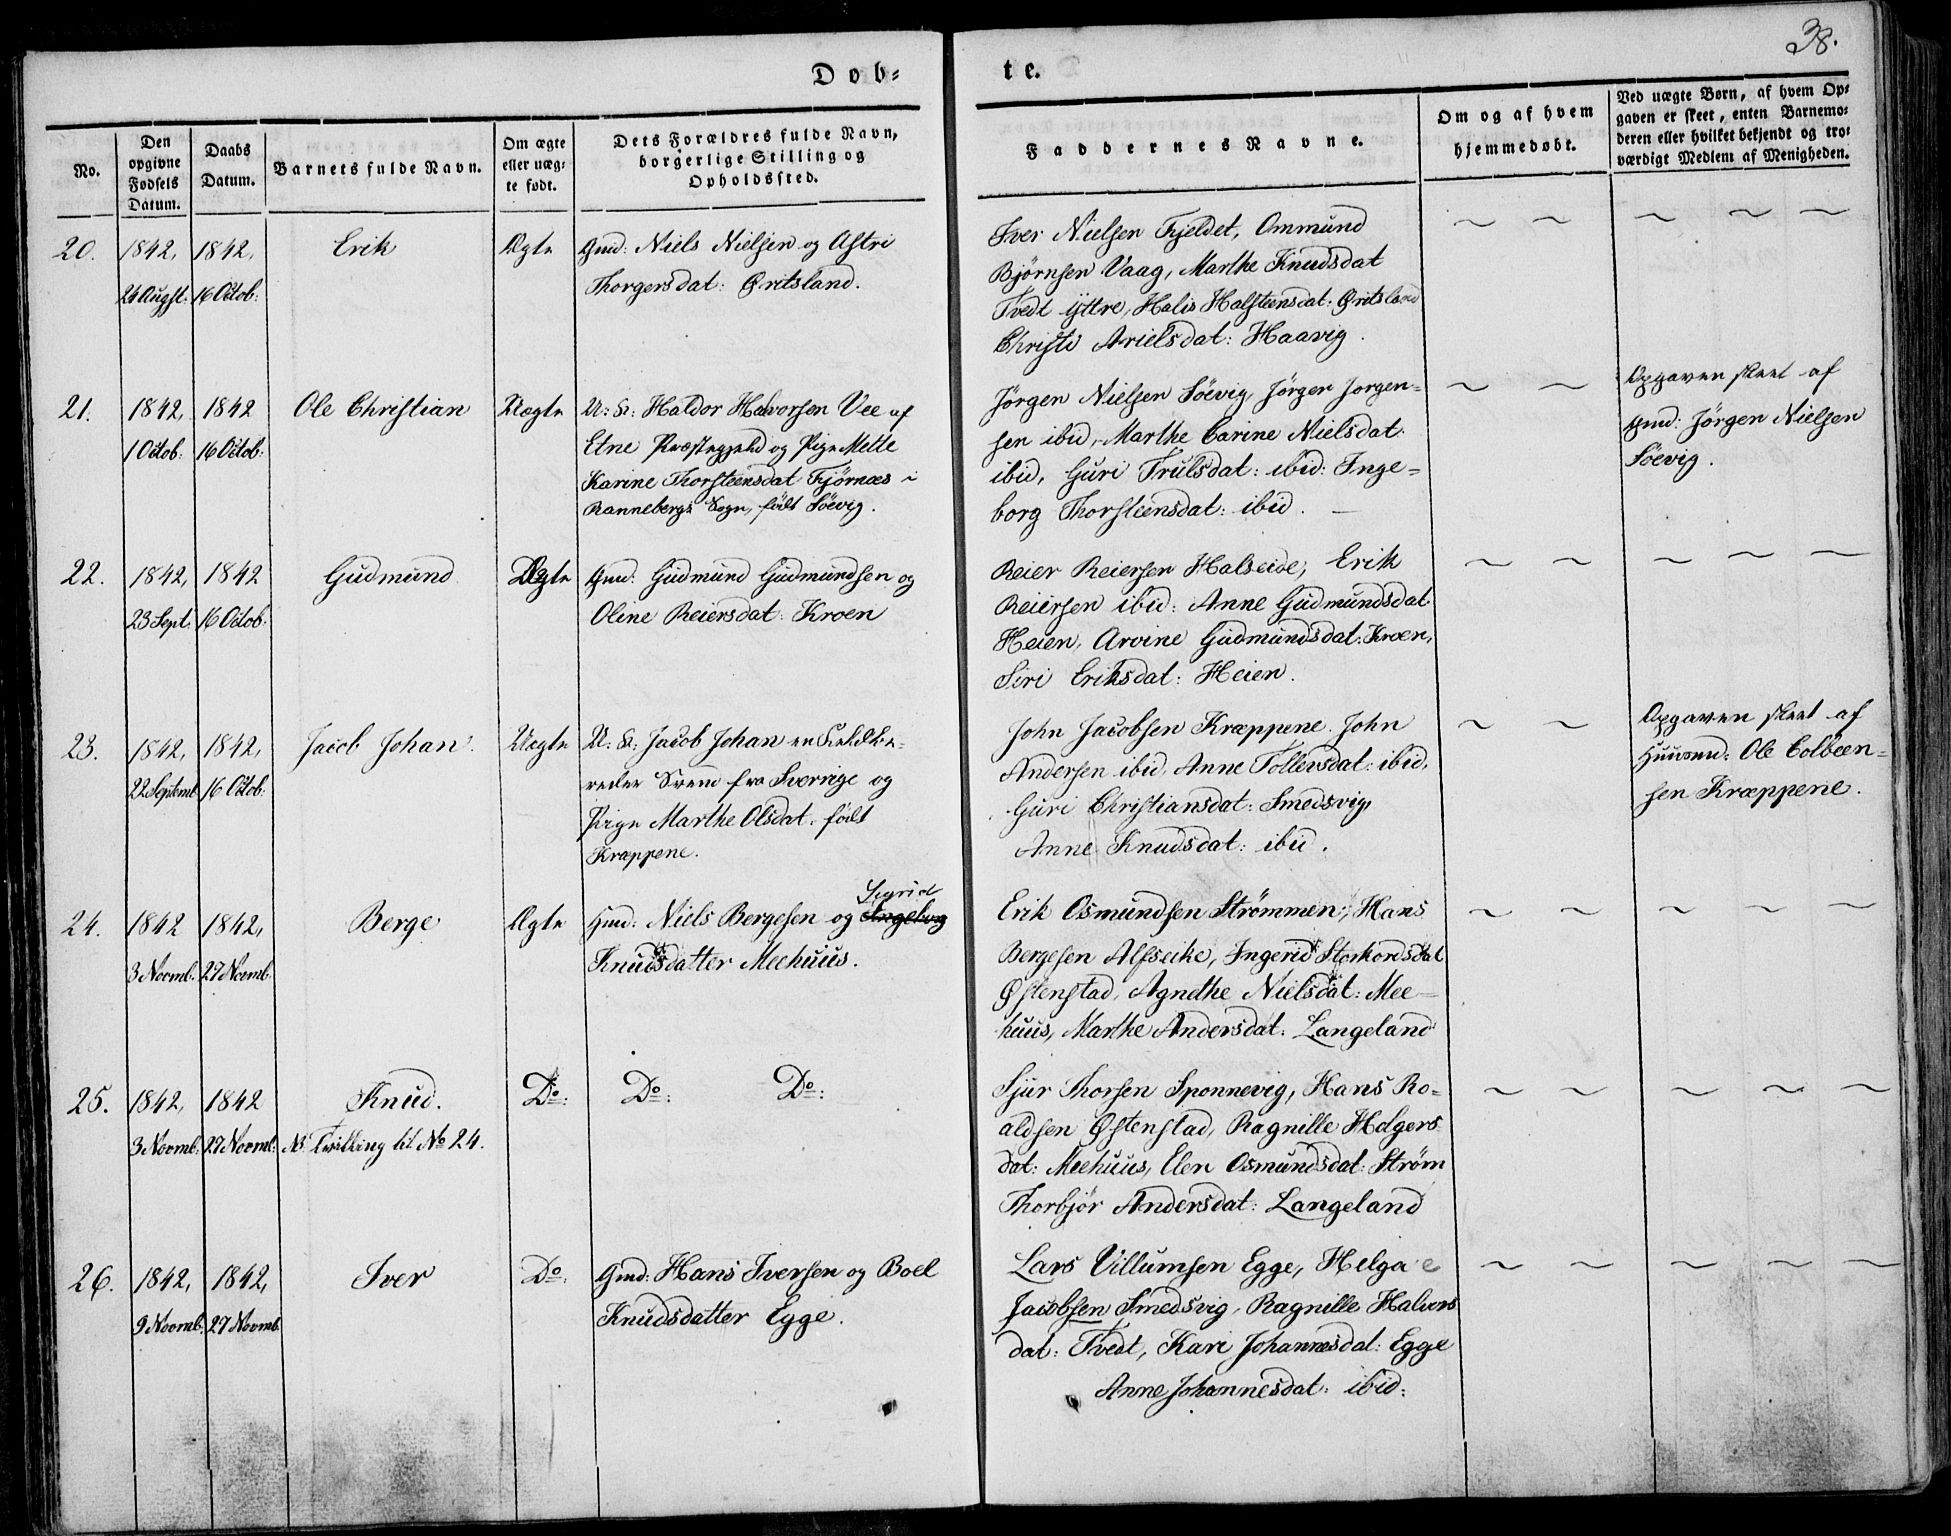 38.
Døb-
te.
No.
Den opgivne Fødsels Datum.
Daabs Datum.
Barnets fulde Navn.
Om ægte eller uæg-
te født.
Dets Forældres fulde Navn,
borgerlige Stilling og
Opholdssted.
Faddernes Navne.
Om og af hvem
hjemmedøbt.
Ved uægte Børn, af hvem Op-
gaven er skeet, enten Barnemo-
deren eller hvilket bekjendt og tro-
værdigt Medlem af Menigheden.
20. 1842, 1842, Erik Ægte Gmd: Niels Nielsen og Astri
24 Augst: 16 Octob: Thorgersdat: Øritsland.
Iver Nielsen Fjeldet, Ommund
Bjørnsen Vaag, Marthe Knudsdat
Tvedt Yttre, Halis Halsteensdat: Øritsland
Christi Arielsdat: Haavig.
21. 1842, 1842 Ole Christian Uægte U: K: Haldor Halvorsen Vee af
1 Octob: 16 Octob: Etne Præstegjeld og Pige Mette
Karine Thorsteensdat Fjørnæs i
Rannebergs Sogn, født Söevig.
Jörgen Nielsen Söevig, Jörgen Jorgen-
sen ibid, Marthe Carine Nielsdat:
ibid, Guri Trulsdat: ibid: Inge-
borg Thorsteensdat: ibid.
Opgaven skeet af
Gmd: Jörgen Nielsen
Söevig.
22. 1842, 1842 Gudmund Ægte Gmd: Gudmund Gudmundsen og
23 Sept: 16 Octob: Oline Reiersdat: Kroen
Reier Reiersen Halseide, Erik
Reiersen ibid: Anne Gudmundsdat
Heien, Arvine Gudmundsdat: Kroen,
Siri Eriksdat: Heien.
23. 1842, 1842, Jacob Johan. Uægte U: K: Jacob Johan en Feldbe-
22 Septemb 16 Octob: reder Svend fra Sverrige og
Pige Marthe Olsdat: født
Kræppene.
John Jacobsen Kræppene. John
Andersen ibid, Anne Tollevsdat: ibid,
Guri Christiansdat: Smedsvig,
Anne Knudsdat: ibid.
Opgaven skeet af
Huusmd: Ole Colbeen-
sen Kræppene.
24. 1842 1842, Berge Ægte Hmd: Niels Bergesen og Ingeborg
Sigrid
3 Novmb: 27 Novmb. Knudsdatter Meehuus.
Erik Osmundsen Strømmen, Hans
Bergesen Alfseike, Ingerid Storkorsdat
Østenstad, Agnethe Nielsdat: Mee-
huus, Marthe Andersdat: Langeland
25. 1842, 1842 Knud. Do: Do: Do:
3 Novmb: 27 Novmb: NB Tvilling til No 24.
Sjur Thorsen Sponnevig, Hans Ro-
aldsen Østenstad, Ragnille Holgers
dat: Meehuus, Elen Osmundsdat: Strøm
Thorbjør Andersdat: Langeland
26. 1842, 1842, Iver Do: Gmd: Hans Iversen og Boel
9 Novmb: 27 Novmb. Knudsdatter Egge.
Lars Villumsen Egge, Helga
Jacobsen Smedsvig, Ragnille Halvors
dat: Tvedt, Kari Johannesdat: Egge
Anne Johannesdat: ibid: